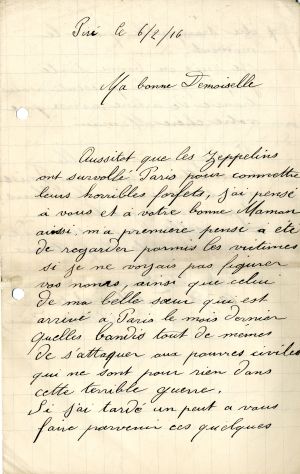 Piré le 6/2/16
Ma bonne Demoiselle
Aussitot que les Zeppelins
ont survollé Paris pour commettre
leurs horribles forfets, j'ai pensé
à vous et à votre bonne Maman
aussi, ma première pensé a été
de regarder parmis les victimes
si je ne voyais pas figurer
vos noms, ainsi que celui
de ma belle sœur qui est
arrivé à Paris le mois dernier
Quelles bandis tout de mêmes
de s'attaquer aux pauvres civiles
qui ne sont pour rien dans
cette terrible guerre.
Si j'ai tardé un peut a vous
faire parvenir ces quelques